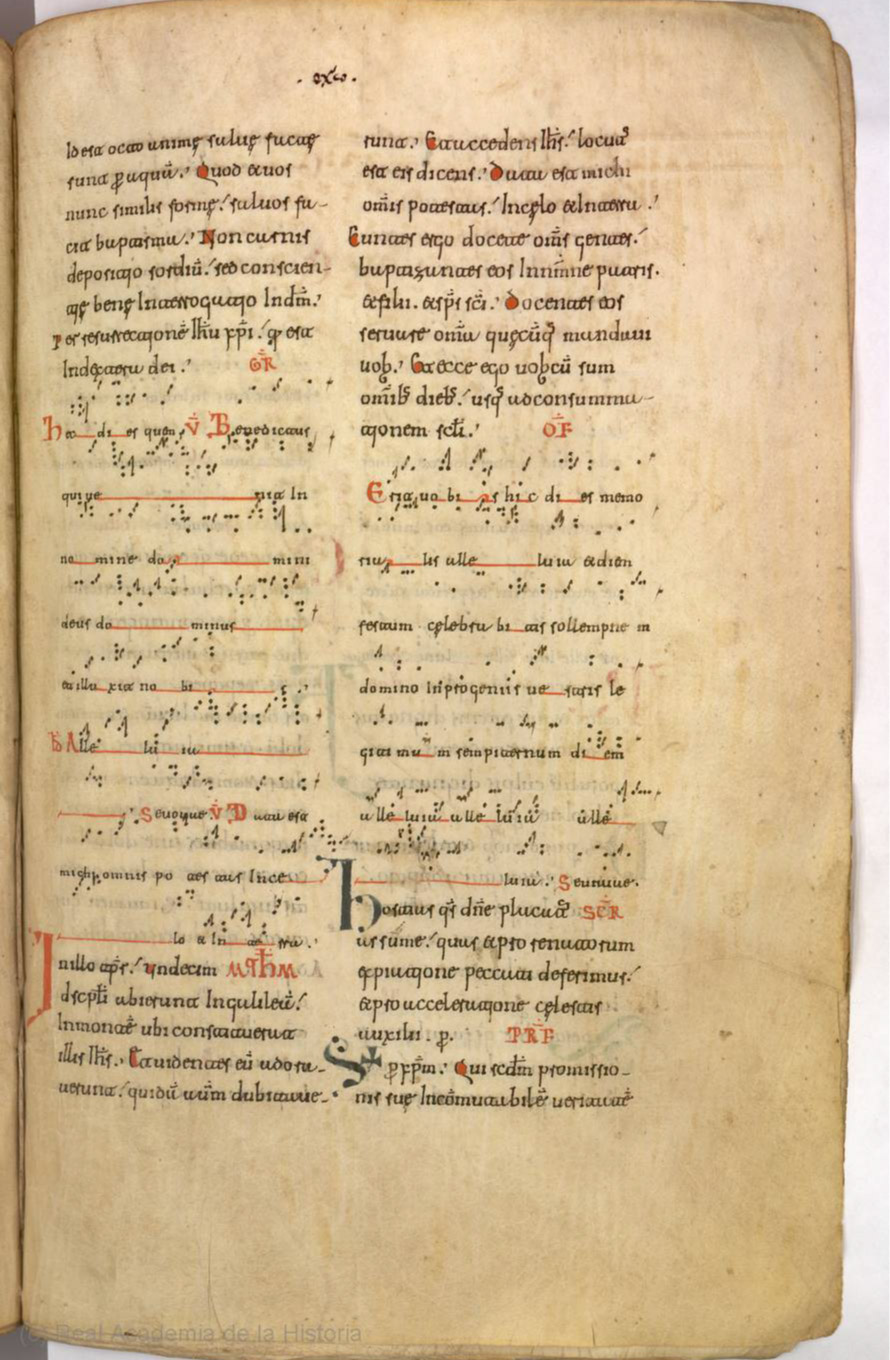 . cxv .
Id est octo animę salvę factę
sunt p aquā. Quod et vos
nunc similis formę salvos fa-
cit baptisma. Non carnis
depositio sordiū. sed conscien-
tię benę Interrogatio In dm̄.
per resurrectionē ihu xpi. qi est
In dextera dei. GR
Hec dies quam V Benedictus
qui venit In
nomine domini
deus dominus
et illuxit nobis.
Alleluia
V Data est
michi omnis potestas In ce
lo et In terra.
In illo tpr. Undecim MTHM
dscpli abierunt In galileā
In montē ubi constituerat
illis ihs. Et videntes eū adora-
verunt. quidā autm dubitave-
runt. Et accedens ihs. locutus
est eis dicens. Data est michi
omis potestas. In cęlo et In terra.
Euntes ergo docete oms gentes.
baptizantes eos In nomine patris.
et filii. et sps sci. Docentes eos
servare omia quęcūq mandavi
vob. Et ecce ego vobcū sum
omib dieb. usq ad consumma-
tionem scli. OF
Erit vobis hic dies memo
rialis alleluia et diem
festum cęlebrabitis sollempne in
domino In progeniis vestris le
gitimum sempiternum diem
alleluia alleluia alle
luia.
Hostias qs dne placatus SCR
assume. quas et pro renatorum
expiatione peccati deferimus.
et pro acceleratione cęlestis
auxilii. p. PRF
p xpm. Qui scdm promissio-
nis suę Incōmutabilē veritatē
(c) Real Academia de la Historia